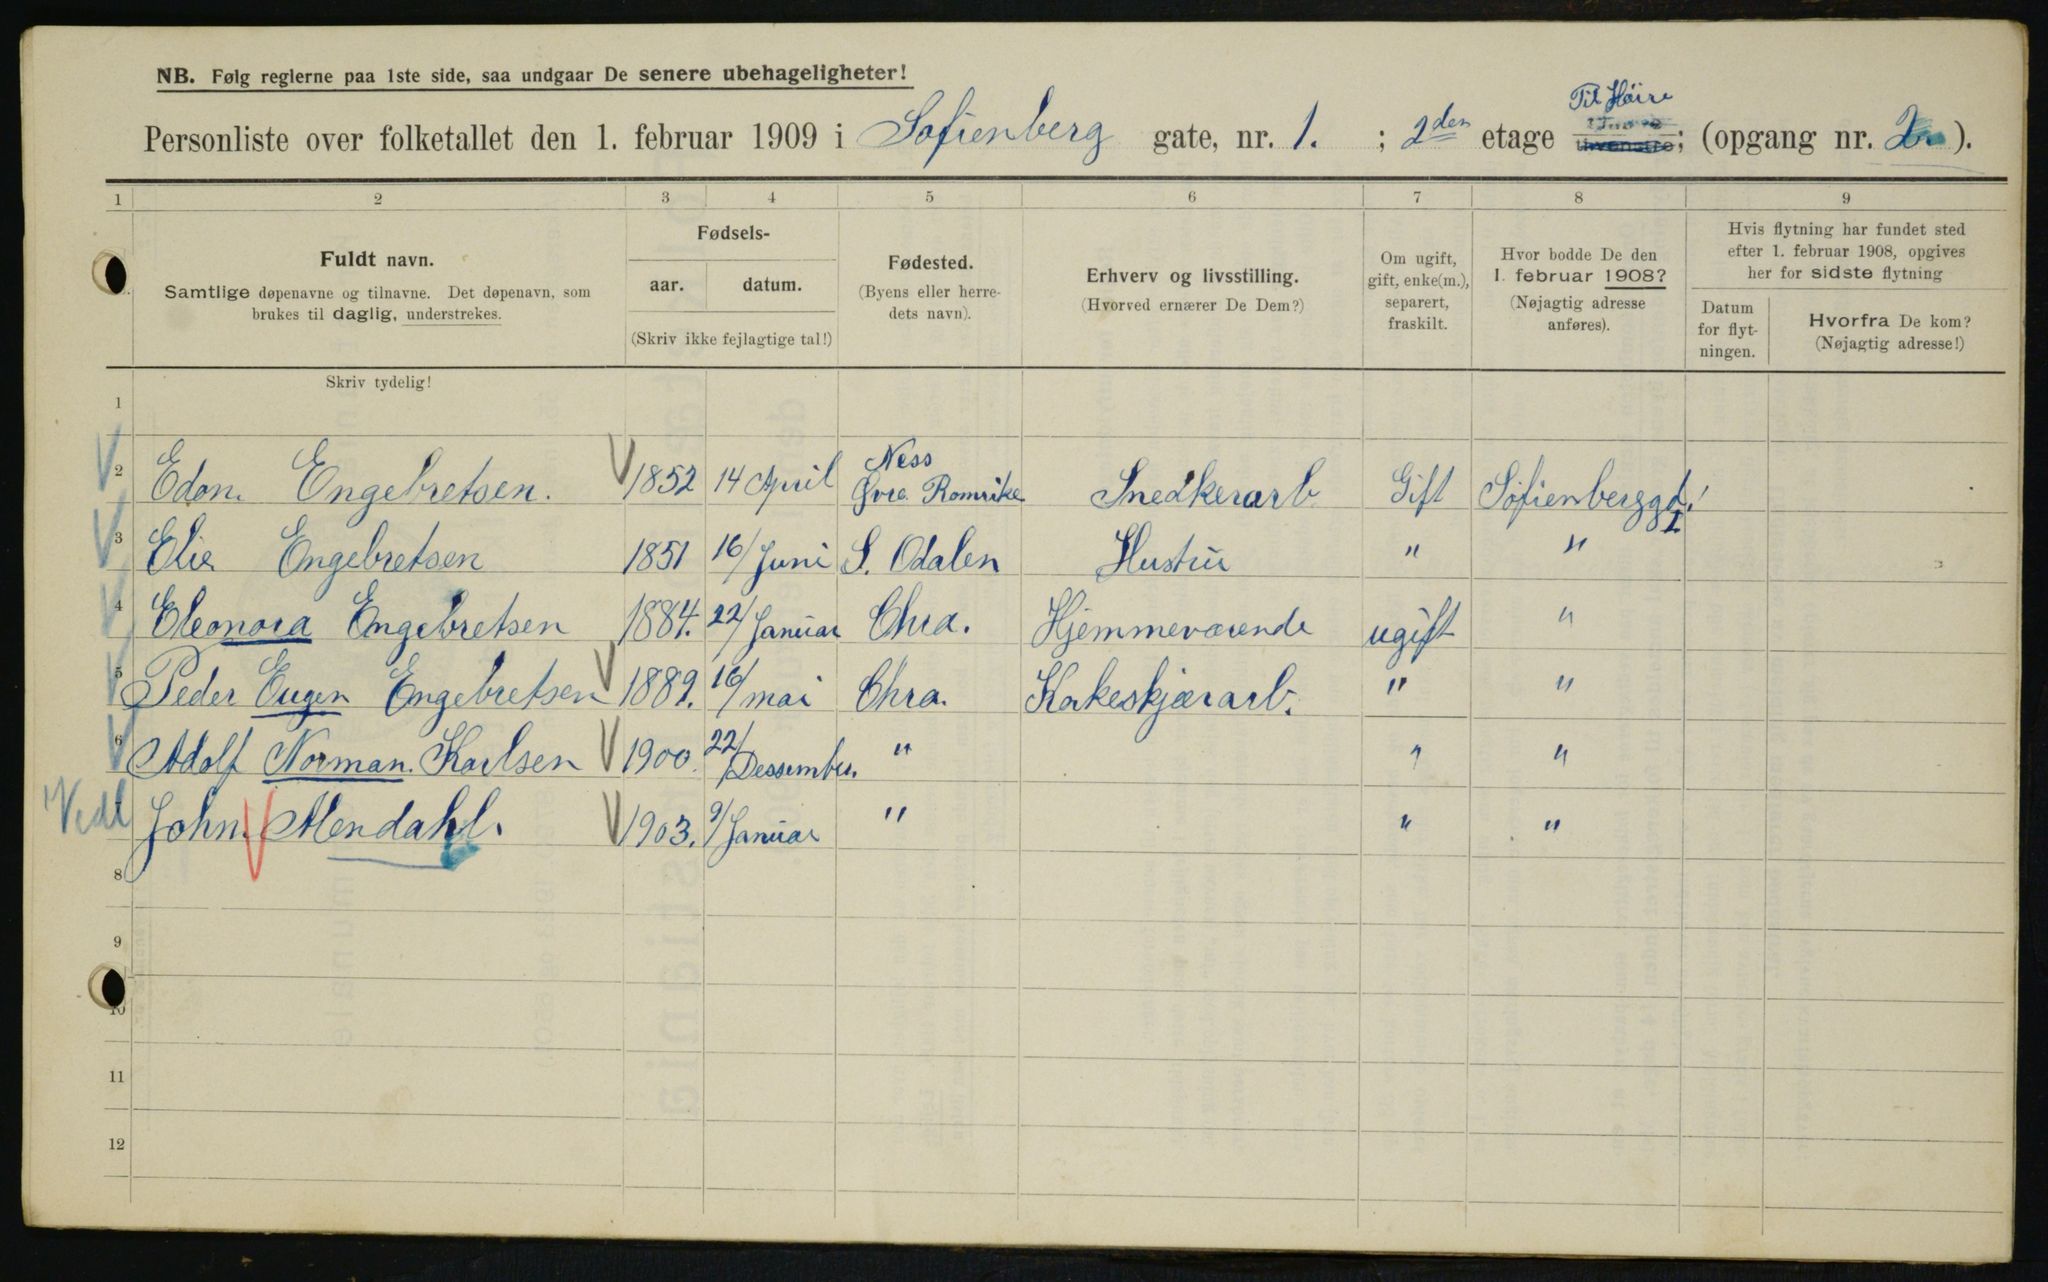 NB. Følg reglerne paa 1ste side, saa undgaar De senere ubehageligheter!
Til Høire
Personliste over folketallet den 1. februar 1909 i Sofienberg gate, nr. 1. ; 2den etage ; (opgang nr. 2 ).
1 2 3 4 5 6 7 8 9
Fuldt navn.
Samtlige døpenavne og tilnavne. Det døpenavn, som
brukes til daglig, understrekes.
Fødsels-
aar. datum.
(Skriv ikke fejlagtige tal!)
Fødested.
(Byens eller herre-
dets navn).
Erhverv og livsstilling.
(Hvorved ernærer De Dem?)
Om ugift,
gift, enke(m.),
separert,
fraskilt.
Hvor bodde De den
1. februar 1908?
(Nøjagtig adresse
anføres).
Hvis flytning har fundet sted
efter 1. februar 1908, opgives
her for sidste flytning
Datum
for flyt-
ningen.
Hvorfra De kom?
(Nøjagtig adresse!)
Skriv tydelig!
1
Ness
2 Edon. Engebretsen. 1852 14 April Øvre Romrike Snedkerarb Gift Sofienberggd. 1
3 Elie Engebretsen 1851 16/Juni S. Odalen Hustru " "
4 Eleonora Engebretsen 1884. 22/Januar Chra. Hjemmeværende ugift "
5 Peder Eugen Engebretsen 1889. 16/mai Chra. Kakeskjærarb. " "
6 Adolf Norman. Karlsen 1900. 22/Dessember. " " "
Vedl John. Mendahl. 1903. 9/Januar " " "
8
9
10
11
12